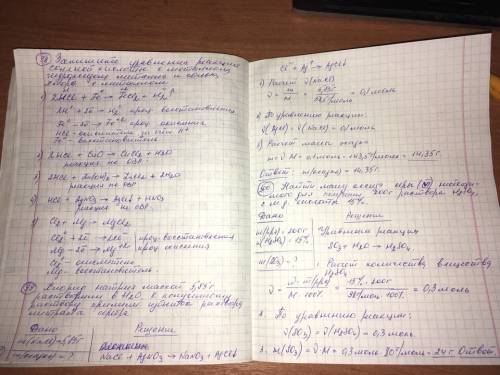 Запишите уравнения реакции
соляной кислотой с
хлора с металлом
1) 2HCl + Fe → FeCl₂ + H₂↑
2H⁺ + 2e → H₂⁰ проц. восстановления
Fe⁰ - 2e → Fe⁺² проц. окисления
HCl - окислитель за счёт H⁺
Fe⁰ - восстановитель
2) 2HCl + CuO → CuCl₂ + H₂O
реакция не ОВР.
3) 2HCl + Zn(OH)₂ → ZnCl₂ + 2H₂O
реакция не ОВР
4) HCl + AgNO₃ → AgCl + HNO₃
реакция не ОВР.
5) Cl₂ + Mg → MgCl₂
Cl₂⁰ + 2e → 2Cl⁻ проц. восстановления
Mg - 2e → Mg⁺² проц. окисления
Cl₂⁰ - окислитель
Mg - восстановитель
Хлорид натрия массой 5,85г
растворили в H₂O. К полученному
раствору прилили раствора
нитрата серебра
Дано Решение
m(NaCl)=5,85г
= ?
NaCl + AgNO₃ → NaNO₃ + AgCl↓
Cl⁻ + Ag⁺ → AgCl↓
1) Расчёт ν(NaCl)
ν = m/M = 5,85г / 58,5г/моль = 0,1 моль
2) По уравнению реакции:
= ν(NaCl) = 0,1 моль
3) Расчёт массы осадка
m = ν·M = 0,1 моль · 143,5г/моль = 14,35г.
Ответ: m(осадка) = 14,35г.
Найти массу оксида серы (VI)
для получения 200г раствора H₂SO₄
с м.д. кислоты 15%.
Дано Решение
m(р-ра) = 200г
(H₂SO₄) = 15%
m(SO₃) = ?
Уравнение реакции
SO₃ + H₂O → H₂SO₄
1. Расчёт количества вещества
H₂SO₄
= 15% · 200г / 98г/моль · 100% = 0,3 моль
2. По уравнению реакции:
ν(SO₃) = ν(H₂SO₄) = 0,3 моль
3. m(SO₃) = ν·M = 0,3 моль · 80г/моль = 24г Ответ.